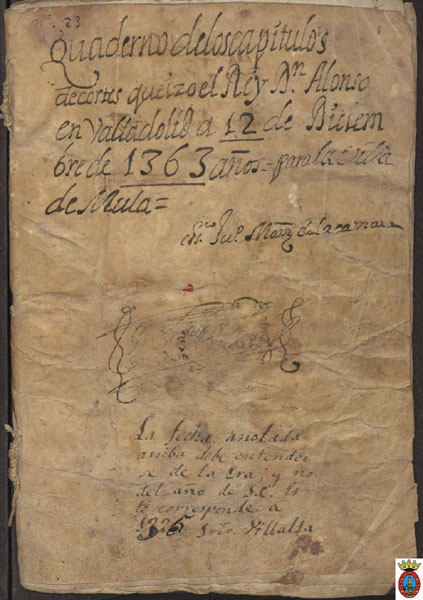 Nº. 23
Quaderno deloscapitulos
decortes queizo el Rey Dn. Alonso
en Valladolid a 12 de Diciem
bre de 1363 años = para la Villa
de Mula =
La fecha anotada
arriba debe entender
se de la Era, y no
del año de J.C. Es
te corresponde a
1325